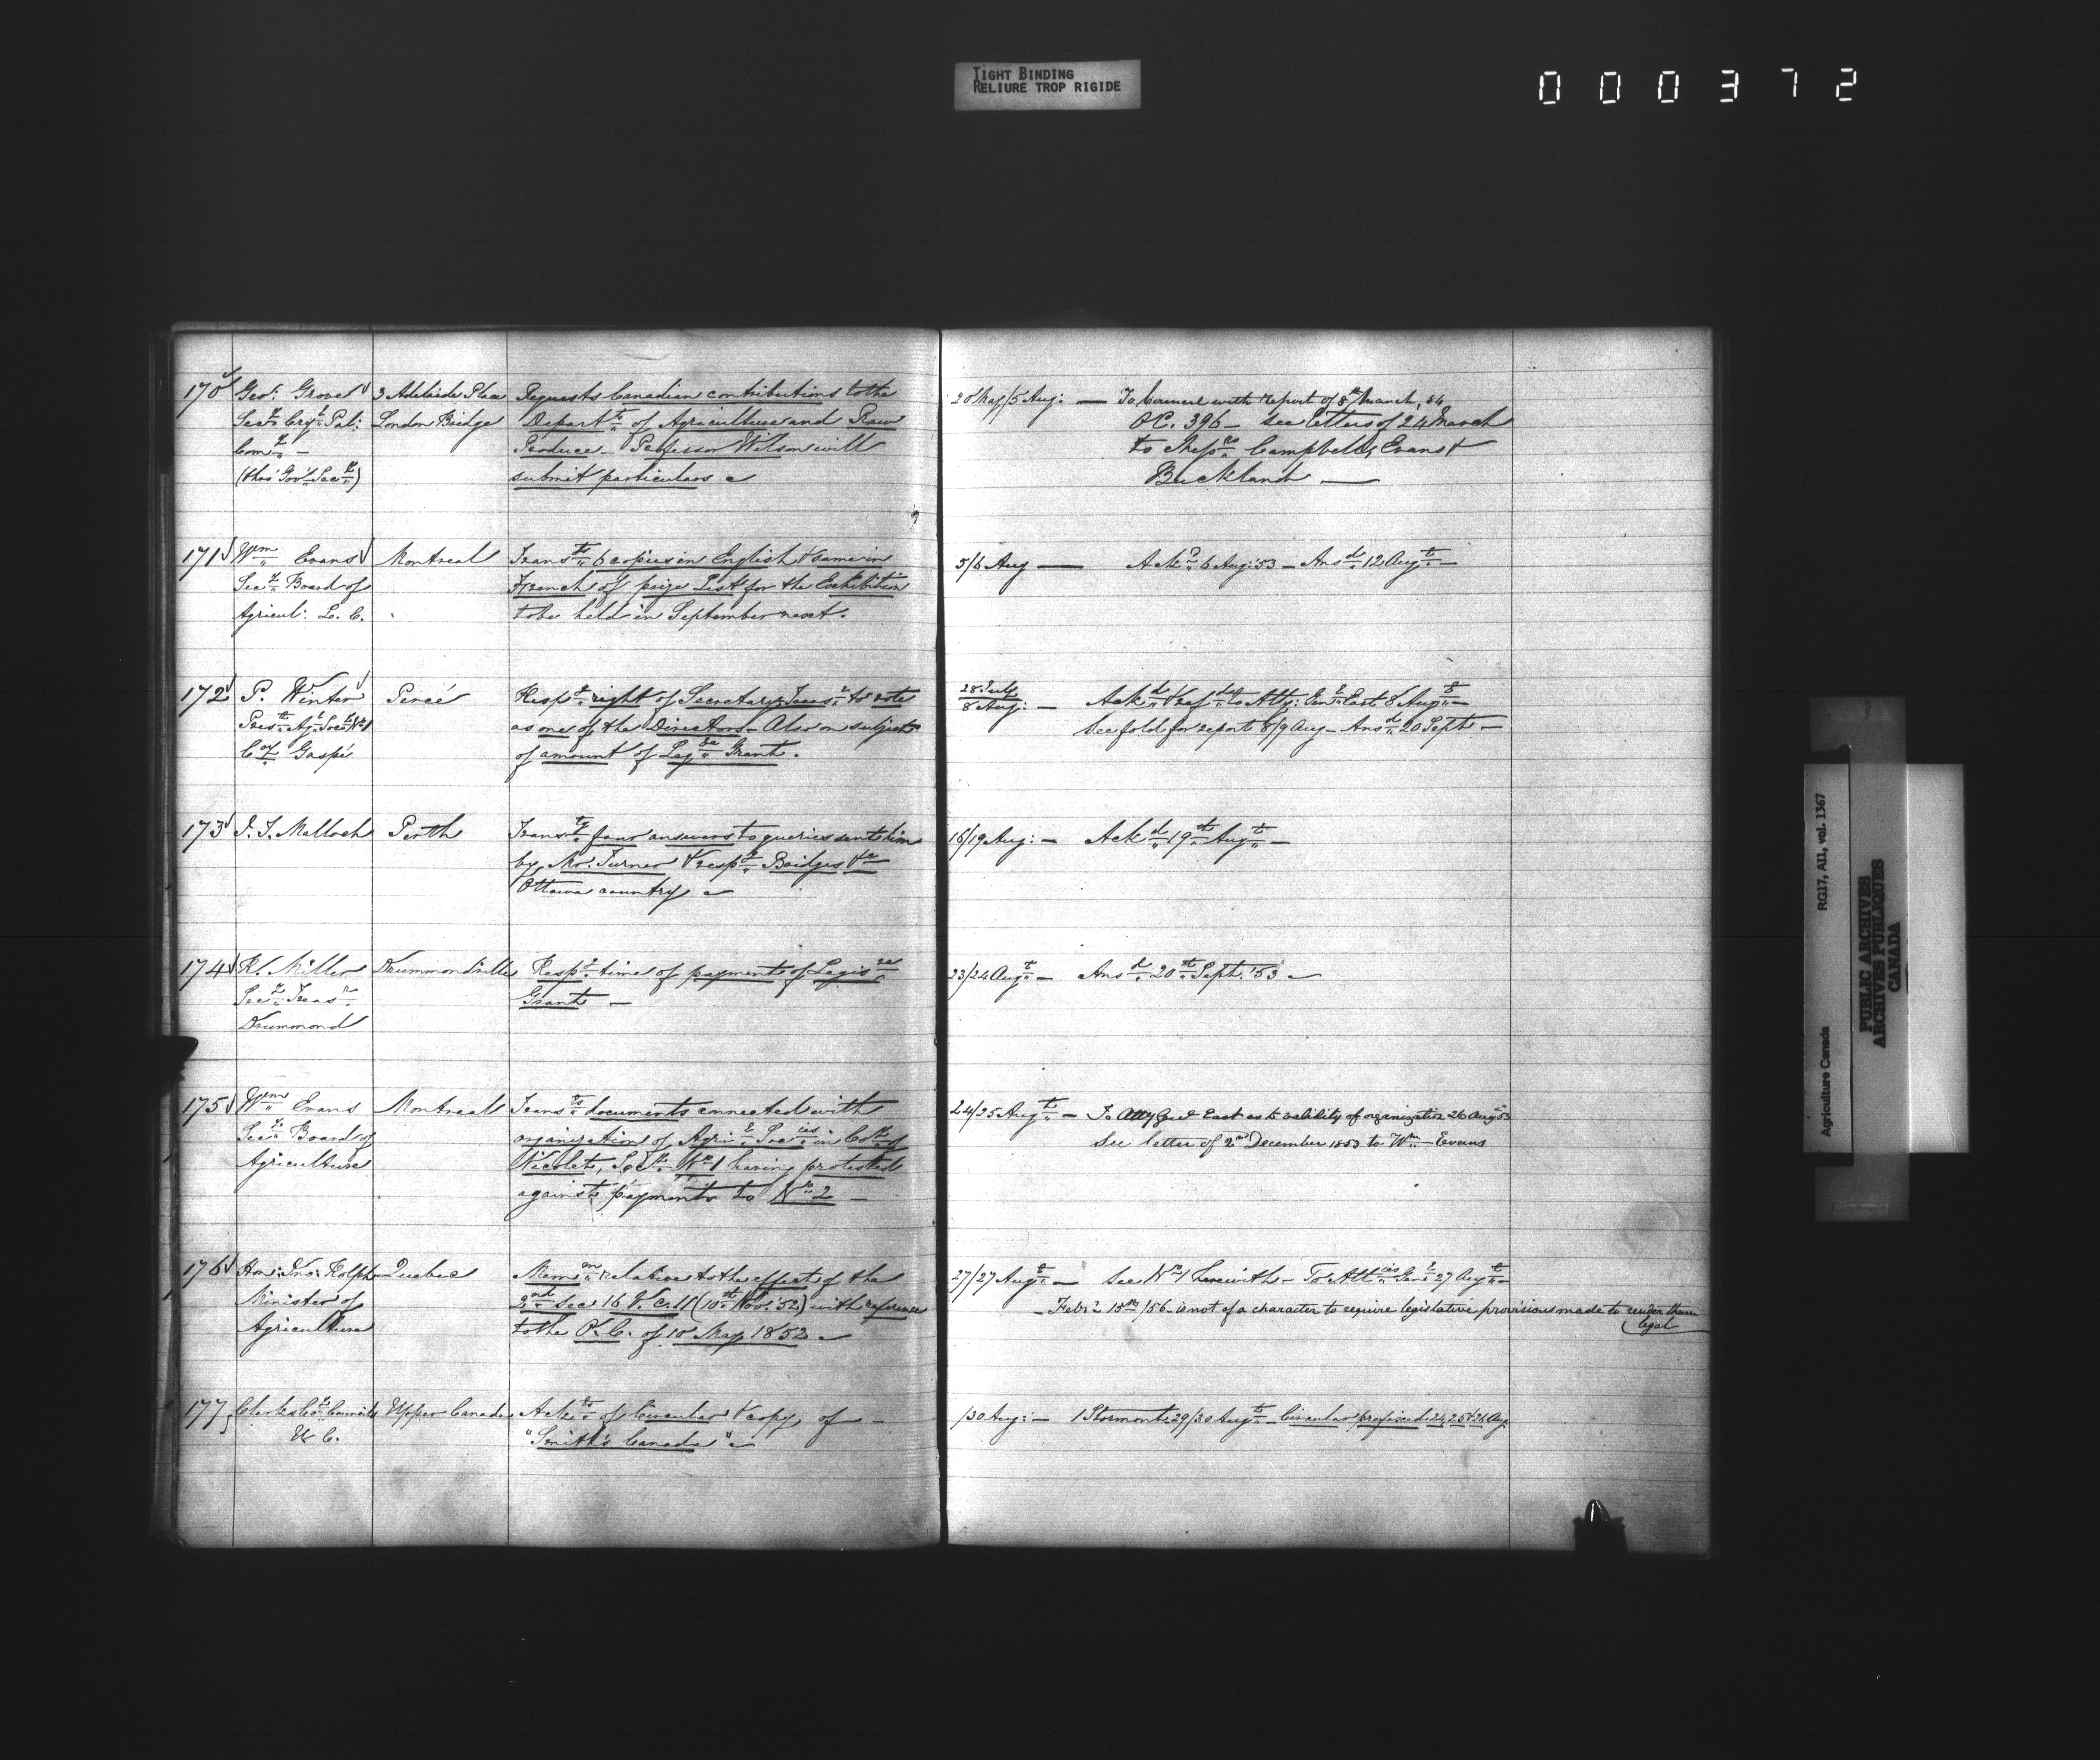 TIGHT BINDING
RELIURE TROP RIGIDE
000372
170 Geo: Grove 3 Adelaide Place Requests Canadian contributions to the
Secy Cryl Pal: London Bridge Departt of Agriculture and Raw
Comy — Produce. Professor Wilson will
(thro' Gov Secy) submit particulars
20 May/5 Aug: — To Council with report of 8th March, 54
O.C. 396 — see letters of 24 March
to Messrs Campbell, Evans &
Buckland —
171 Wm Evans Montreal Transts 6 copies in English & same in
Secy Board of French of prize List for the Exhibition
Agricul: L. C. to be held in September next.
5/6 Aug — Ackd 6 Aug: 53 — Ansd 12 Augt —
172 P. Winter Percé Respg right of Secretary Treasr to vote
Prest Agl Socy No 1 as one of the Directors — Also on subject
Co of Gaspé of amount of Legve Grant.
28 July
8 Aug: — Ackd & refd to Atty: Genl East 8 Augt —
See fold for report 8/9 Aug — Ansd 20 Sept —
173 J. T. Malloch Perth Transtg four answers to queries sent him
by Mr. Turner & respg Bridges &c
Ottawa country
16/19 Aug: — Ackd 19th Augt —
174 R. Miller Drummondville Respg time of payment of Legisve
Secy Treasr Grant —
Drummond
23/24 Augt — Ansd 20th Sept. '53
175 Wm Evans Montreal Transts documents connected with
Secy Board of organization of Agril Socies in Coy of
Agriculture Nicolet, No 1 having protested
against payments to No 2 —
24/25 Augt — To Atty Genl East as to validity of organization 26 Aug 53
See letter of 2nd December 1853 to Wm Evans
176 Hon: Jno: Rolph Quebec Memm relative to the effect of the
Minister of 2nd Sec 16 V. c. 11 (10th Nov. '52) with reference
Agriculture to the O. C. of 10 May 1852
27/27 Augt — See No 1 herewith — To Attcies Genl 27 Augt —
— Feby 15th /56 — is not of a character to require legislative provisions made to render them
legal
177 Clerks Coy Councils Upper Canada Ackts of Circular & copy of —
U C. "Smith's Canada"
/30 Aug: — 1 Stormont 29/30 Augt — Circular prefixed 24, 25 & 26 Aug.
Agriculture Canada RG17, AII, vol. 1367
PUBLIC ARCHIVES
ARCHIVES PUBLIQUES
CANADA